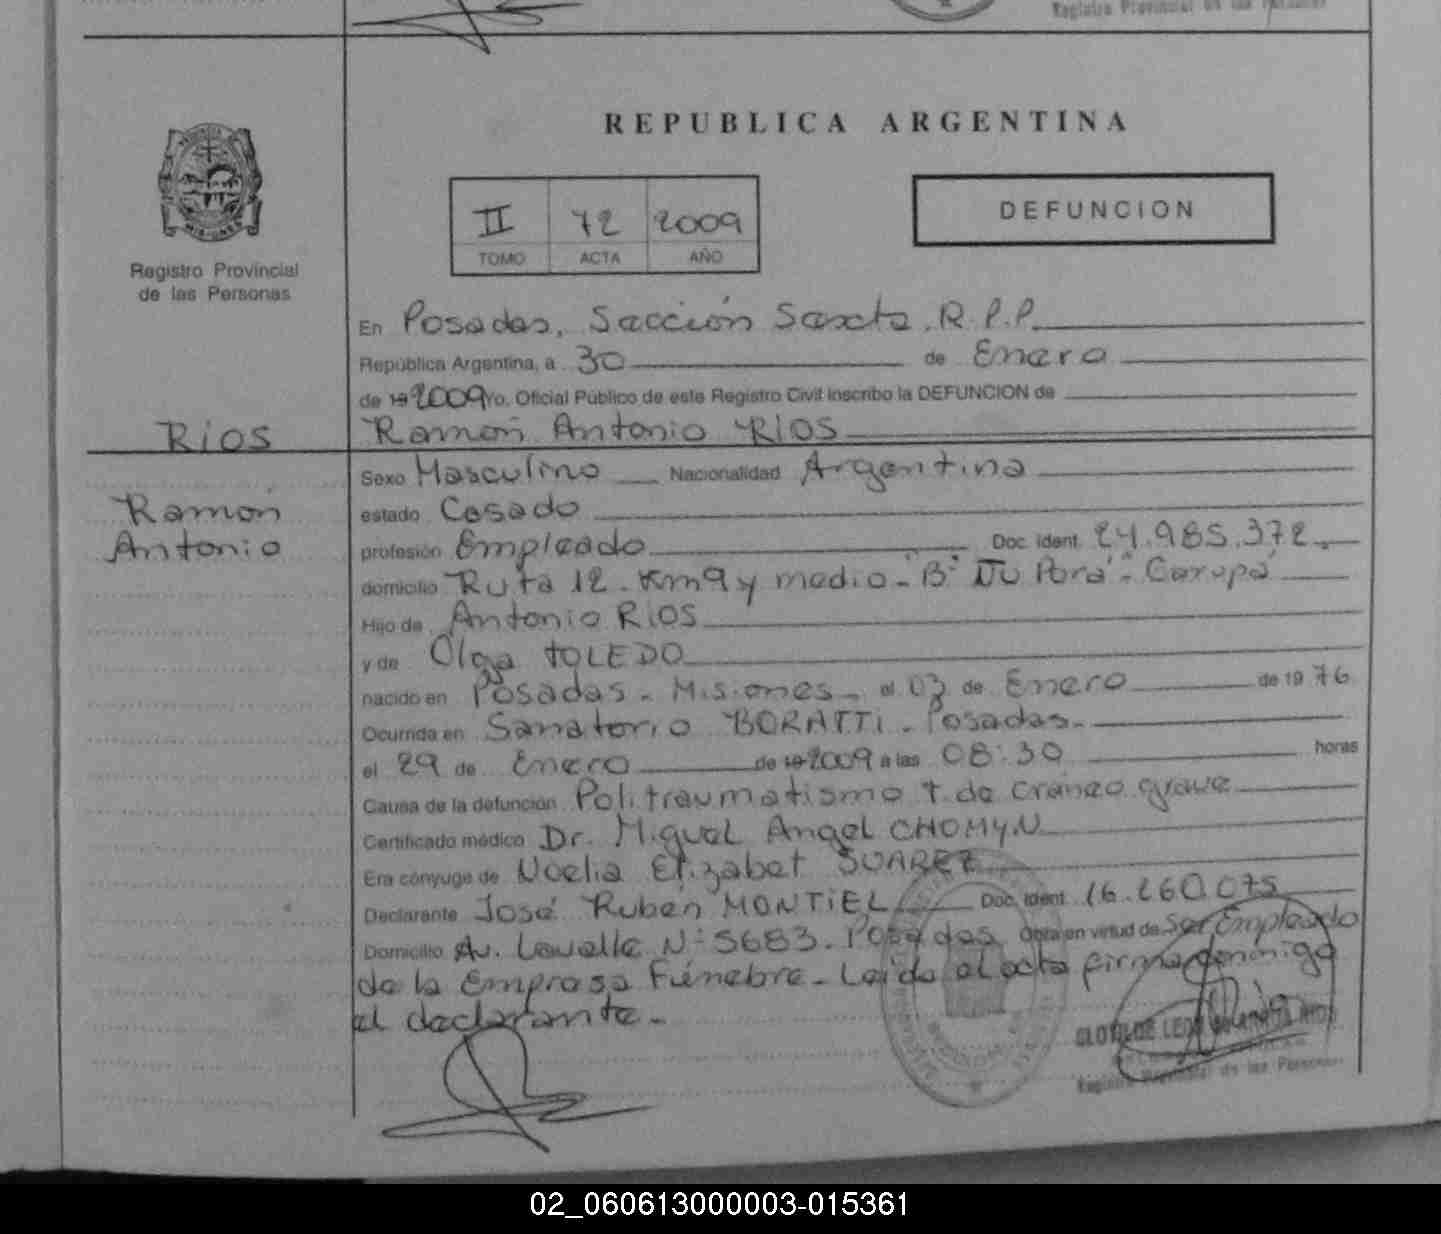 Registro Provincial de las Personas
REPUBLICA ARGENTINA
DEFUNCION
II 72 2009
TOMO ACTA AÑO
Registro Provincial
de las Personas
En Posadas, Sección Sexta. R.P.P.
República Argentina, a 30 de Enero
de 19 2009 Yo, Oficial Público de este Registro Civil inscribo la DEFUNCION de
RIOS
Ramón Antonio RIOS
Ramón
Antonio
Sexo Masculino Nacionalidad Argentina
estado Casado
profesión Empleado Doc. Ident. 24.985.372.
domicilio Ruta 12 - Km 9 y medio - "B° Ñu Porá" - Garupá
Hijo de Antonio RIOS
y de Olga TOLEDO
nacido en Posadas - Misiones - el 03 de Enero de 1976
Ocurrida en Sanatorio BORATTI - Posadas -
el 29 de Enero de 19 2009 a las 08:30 horas
Causa de la defunción Politraumatismo T. de cráneo grave
Certificado médico Dr. Miguel Angel CHOMYN
Era cónyuge de Noelia Elizabet SUAREZ
Declarante José Ruben MONTIEL Doc. Ident. 16.260.075
Domicilio Av. Lavalle N° 5683. Posadas Obra en virtud de Ser Empleado
de la Empresa Fúnebre - Leída el acta firma conmigo
el declarante. -
CLOTILDE
Registro Provincial de las Personas
02_060613000003-015361